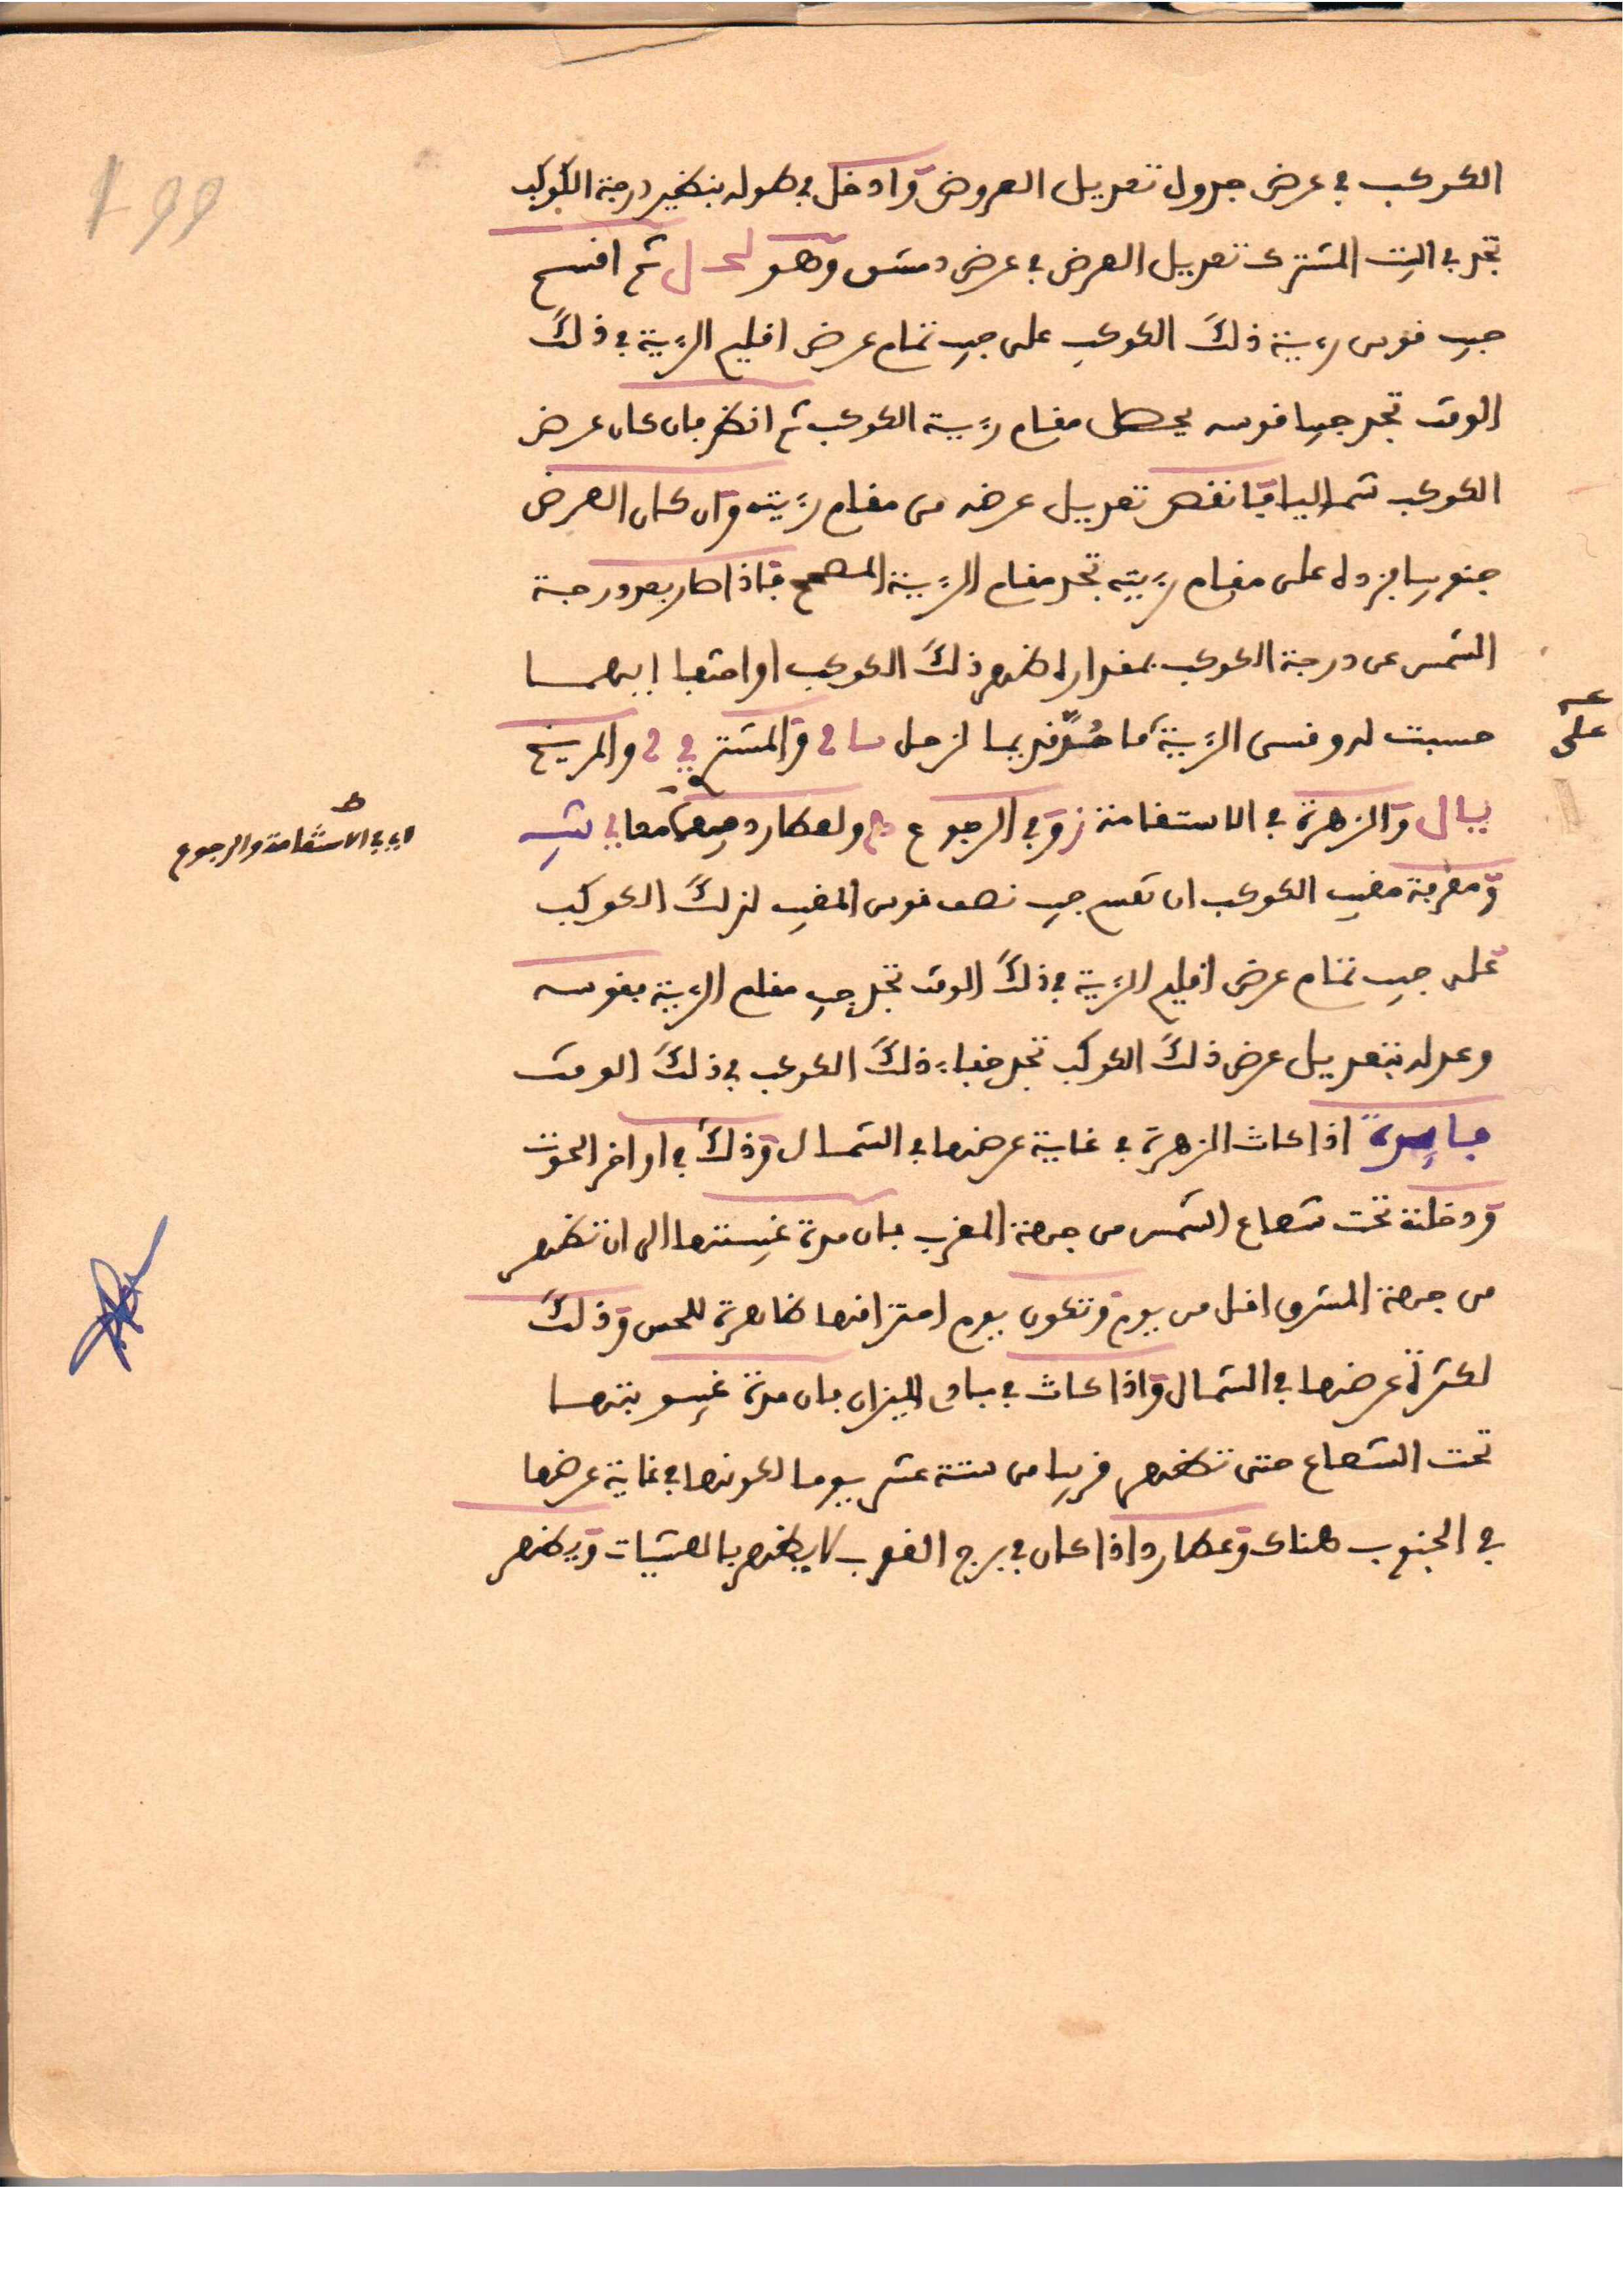 199
الكوكب في عرض جدول تعديل العروض وادخل في طوله بنظير درجة الكوكب
تجد في البيت المشترك تعديل العرض في عرض دمشق وهو لحد ل ثم اقسم
جيب قوس رءية ذلك الكوكب على جيب تمام عرض اقليم الرءية في ذلك
الوقت تجد جيبا قوسه يحصل مقام رءية الكوكب ثم انظر فان كان عرض
الكوكب شماليا فانقص تعديل عرضه من مقام رءيته وان كان العرض
جنوبيا فزده على مقام رءيته تجد مقام الرءية المصحح فاذا صار بعد درجة
الشمس عن درجة الكوكب بمقداره ظهر ذلك الكوكب او اختفا ايهما
حسبت له وقسى الرءية ما لزحل والمشتري والمريخ
على
يبال والزهرة في الاستقامة ز وفي الرجوع ولعطارد معا في
اي في الاستقامة والرجوع ط
ومعرفة مغيب الكوكب ان تقسم جيب نصف قوس المغيب لذلك الكوكب
على جيب تمام عرض اقليم الرءية في ذلك الوقت تجد جيب مقام الرءية بقوسه
وعدله بتعديل عرض ذلك الكوكب تجد خفاء ذلك الكوكب في ذلك الوقت
فايدة اذا كانت الزهرة في غاية عرضها في الشمال وذلك في اواخر الحوت
ودخلت تحت شعاع الشمس من جهة المغرب فان مدة غيبتها الى ان تظهر
من جهة المشرق اقل من يوم وتكون يوم احتراقها ظاهرة للحس وذلك
لكثرة عرضها في الشمال واذا كانت في مبادي الميزان فان مدة غيبوبتها
تحت الشعاع حتى تظهر قريبا من ستة عشر يوما لكونها في غاية عرضها
في الجنوب هناك وعطارد اذا كان في برج العقرب لا يظهر بالعشيات ويظهر